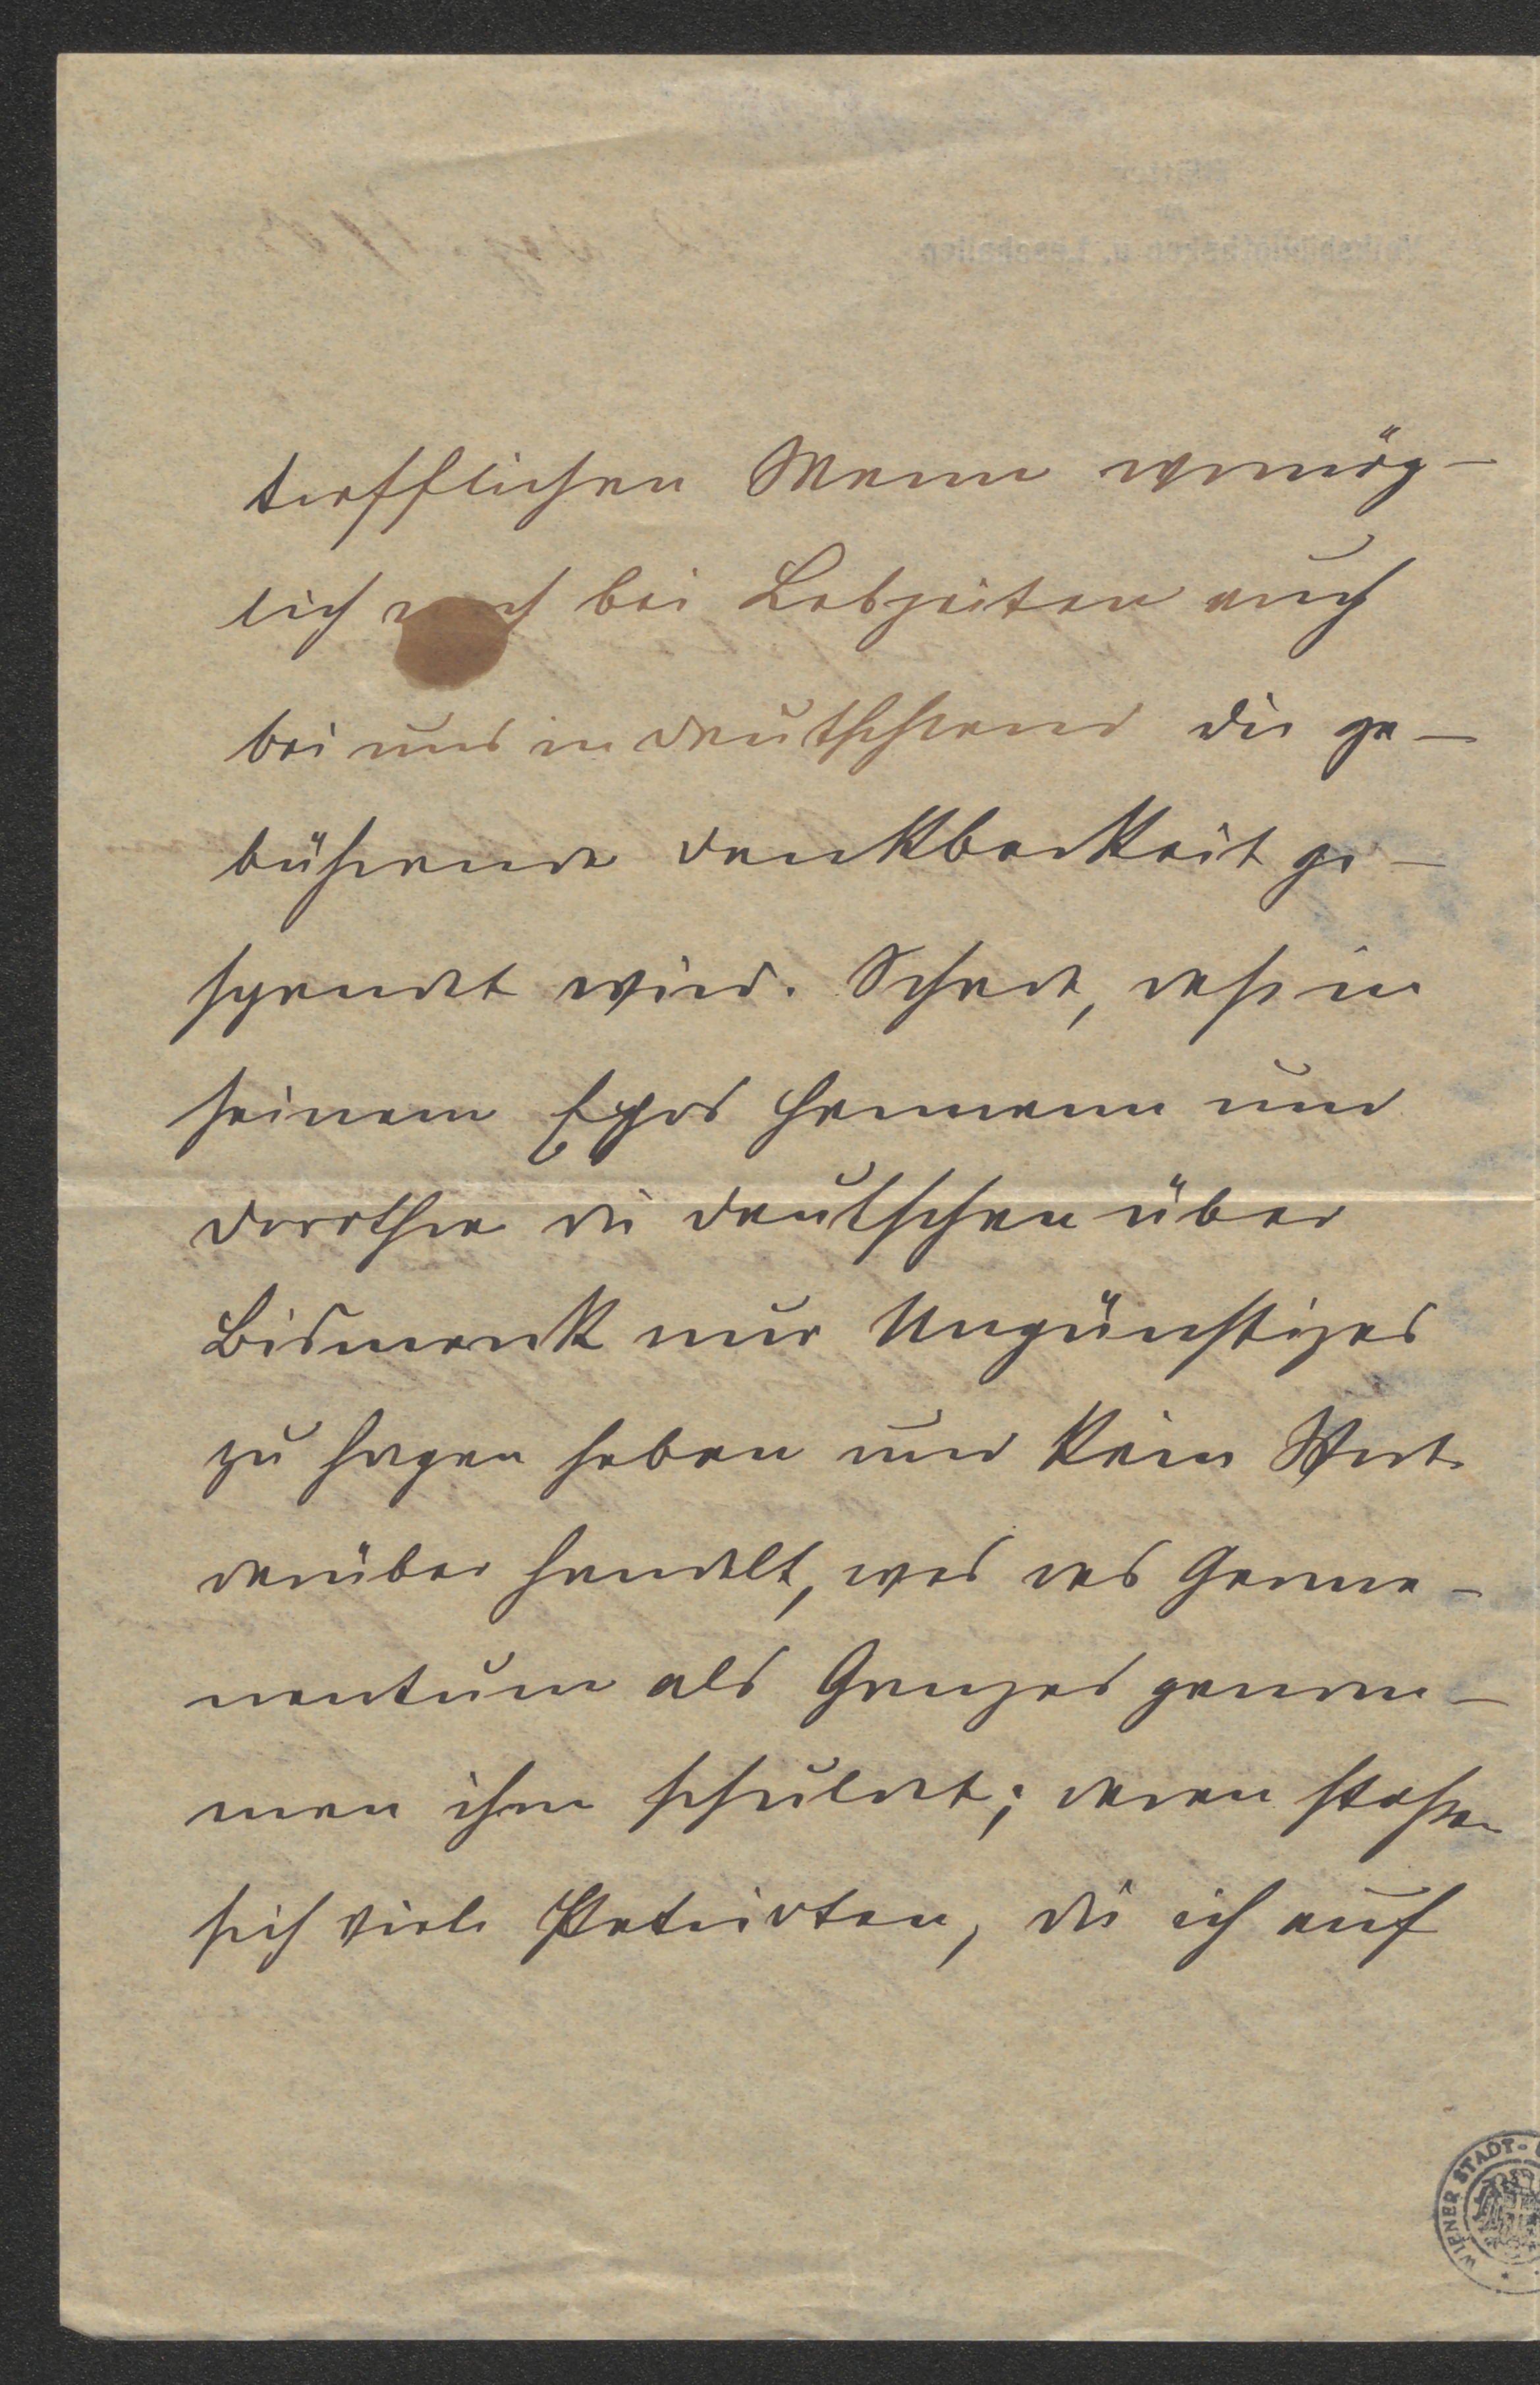 trefflichen Mann womög-
lich noch bei Lebzeiten auch
bei uns in Deutschland die ge-
bührende Dankbarkeit ge-
spendet wird. Schade, daß in
seinem Epos Hermann und
Dorothea die Deutschen über
Bismarck nur Ungünstiges
zu sagen haben und kein Wort
darüber handelt, was das Germa-
nentum als Ganzes genom-
men ihm schuldet; daran stoßen
sich viele Patrioten, die ich auf
WIENER STADT-